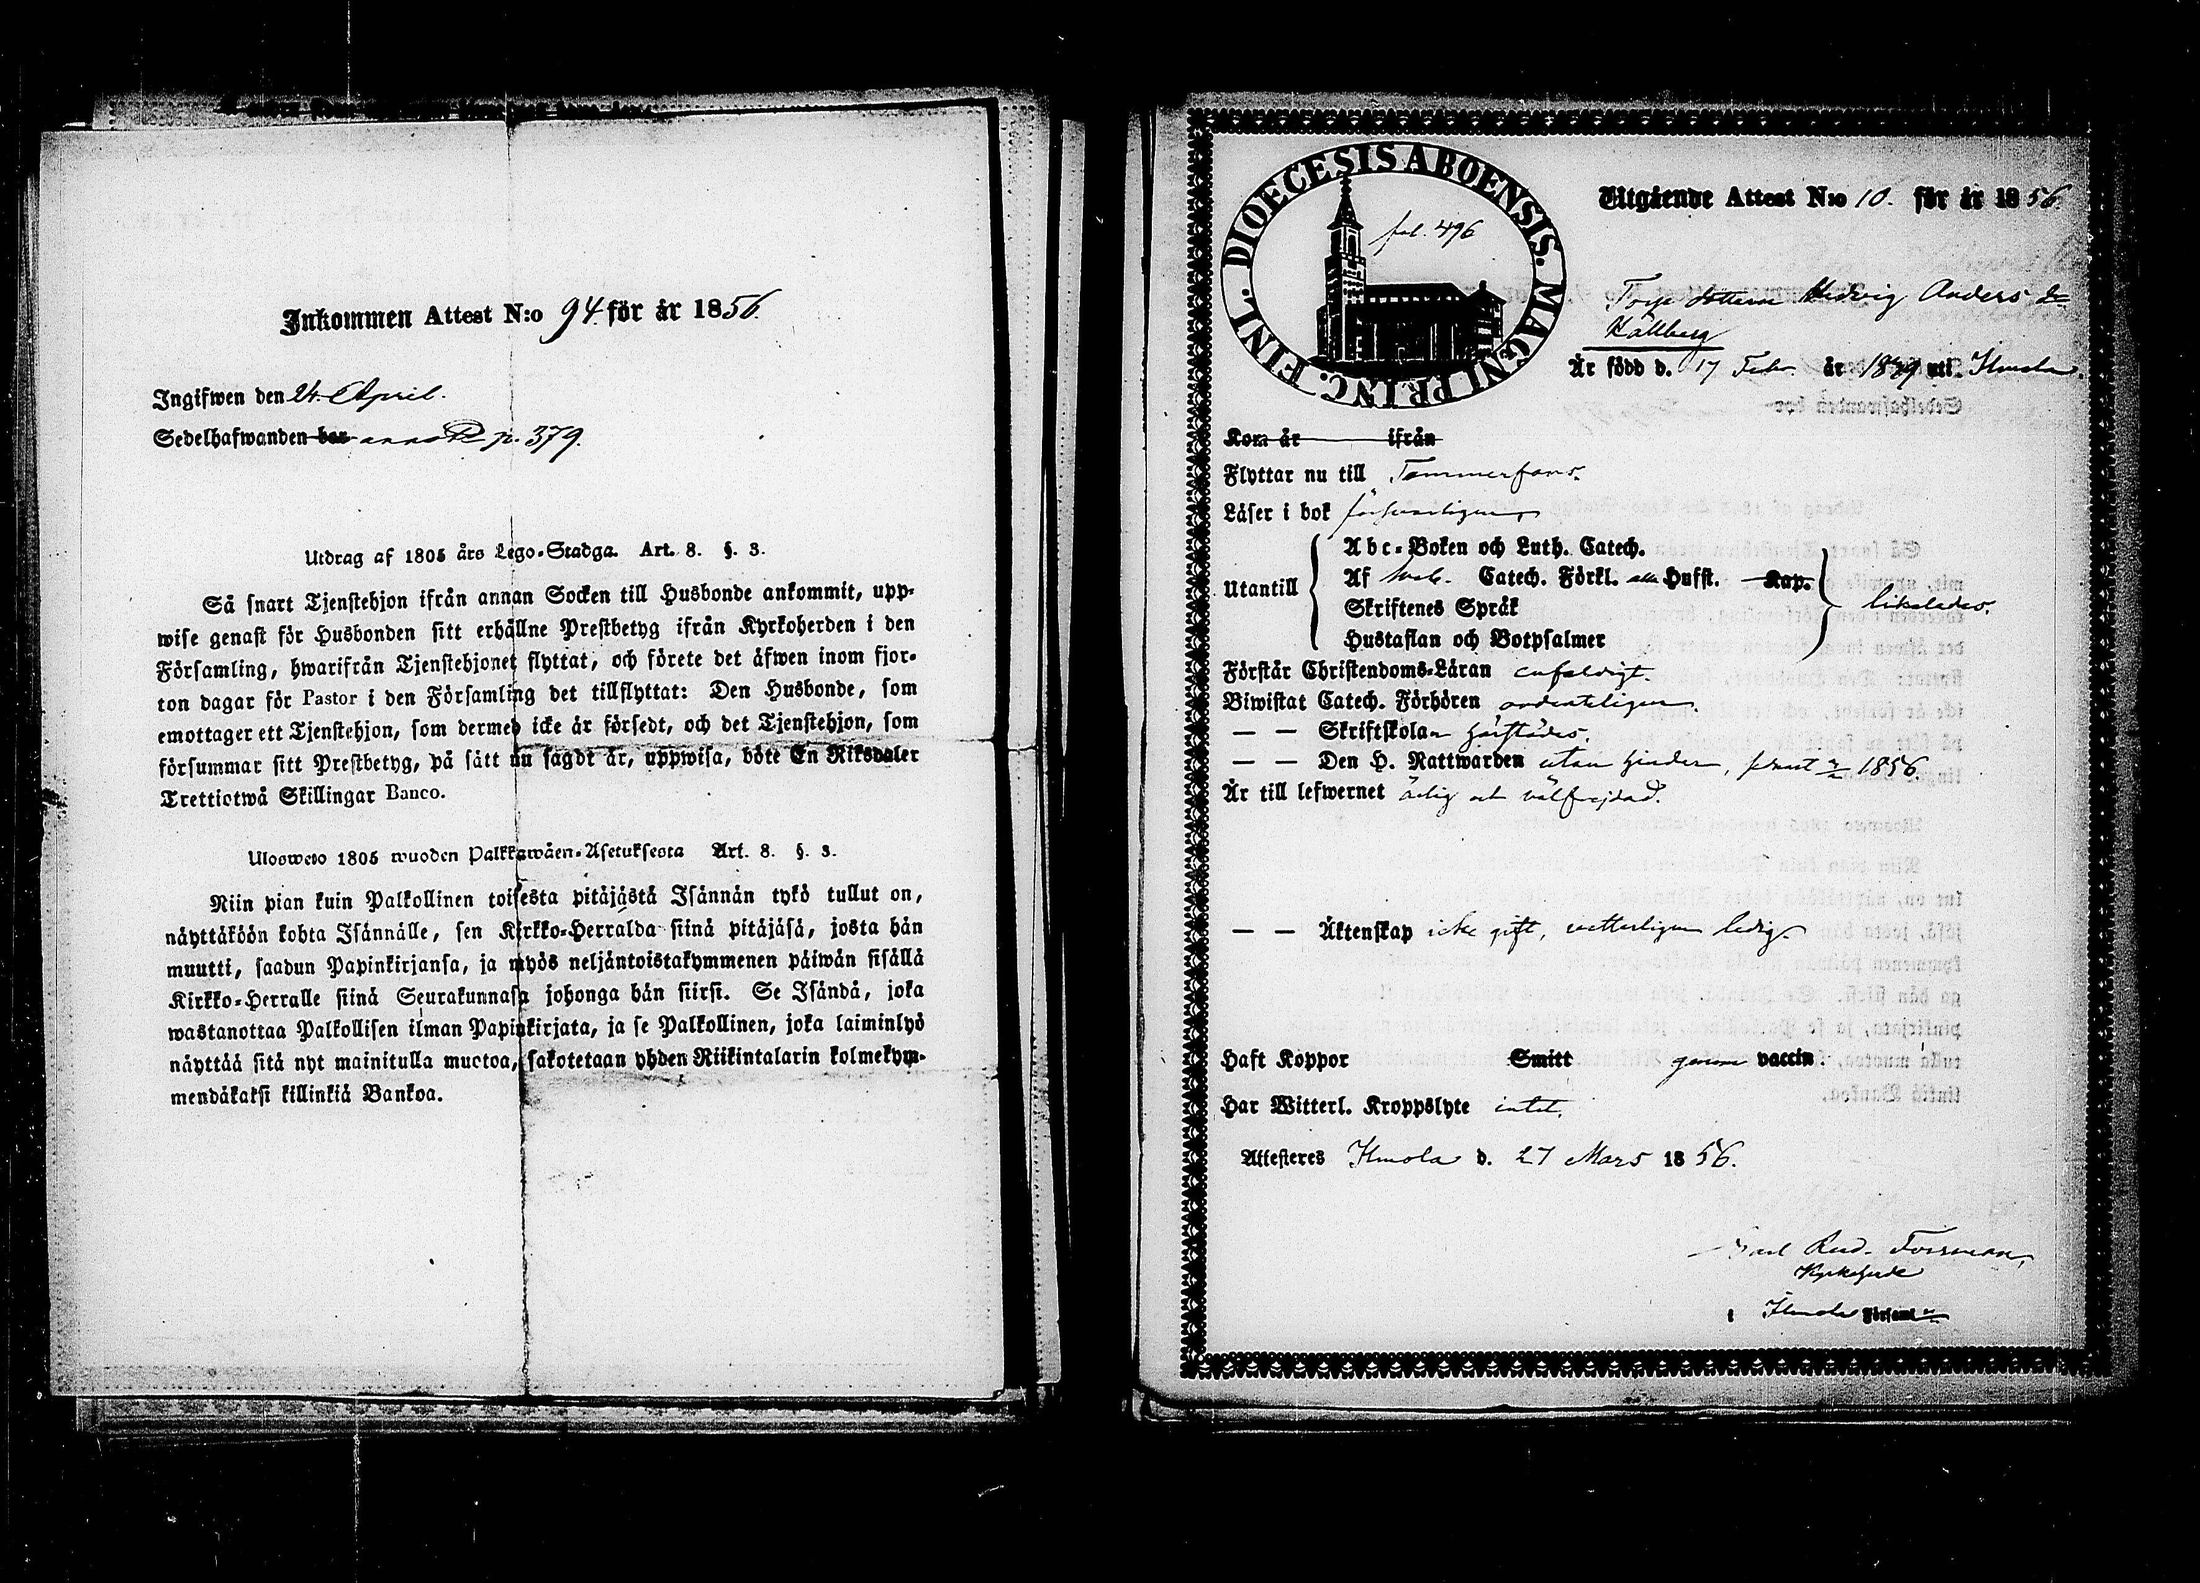 Inkommen Attest N:o 94. för år 1856.
Ingifwen den 24. April.
Sedelhafwanden bor annot p. 379.
Utdrag af 1805 års Lego-Stadga. Art. 8. §. 3.
Så snart Tjenstehjon ifrån annan Socken till Husbonde ankommit, upp-
wise genast för Husbonden sitt erhållne Prestbetyg ifrån Kyrkoherden i den
Församling, hwarifrån Tjenstehjonet flyttat, och förete det äfwen inom fjor-
ton dagar för Pastor i den Församling det tillflyttat: Den Husbonde, som
emottager ett Tjenstehjon, som dermed icke är försedt, och det Tjenstehjon, som
försummar sitt Prestbetyg, på sätt nu sagdt är, uppwisa, böte En Riksdaler
Trettiotwå Skillingar Banco.
Ulosweto 1805 wuoden Palkkawäen-Asetuksesta Art. 8. §. 3.
Niin pian kuin Palkollinen toisesta pitäjästä Isännän tykö tullut on,
näyttäköön kohta Isännälle, sen Kirkko-Herralda siinä pitäjäsä, josta hän
muutti, saadun Papinkirjansa, ja myös neljäntoistakymmenen päiwän sisällä
Kirkko-Herralle siinä Seurakunnasa johonga hän siirsi. Se Isändä, joka
wastanottaa Palkollisen ilman Papinkirjata, ja se Palkollinen, joka laiminlyö
näyttää sitä nyt mainitulla muotoa, sakotetaan yhden Riikintalarin kolmekym-
mendäkaksi killinkiä Bankoa.
DIOECESIS ABOENSIS. MAGNI PRINC. FINL.
fol. 496
Utgående Attest N:o 10. för år 1856.
Torp dottern Hedvig Anders dr
Källberg
Är född d. 17 Febr. år 1839 uti Ilmola.
Kom år ifrån
Flyttar nu till Tammerfors.
Läser i bok försvarligen,
Utantill
Abc-Boken och Luth. Catech.
Af Sveb. Catech. Förkl. alla Hufst. Kap.
Skriftenes Språk
Hustaflan och Botpsalmer
likaledes.
Förstår Christendoms-Läran enfaldigt.
Biwistat Catech. Förhören ordenteligen.
— — Skriftskolan härstädes.
— — Den H. Nattwarden utan hinder, 1856.
Är till lefwernet ärlig och välfrejdad.
— — Äktenskap icke gift, vetterligen ledig.
Haft Koppor Smitt genom vaccin.
Har Witterl. Kroppslyte intet.
Attesteres Ilmola d. 27 Mars 1856.
Carl Rud. Forsman,
Kyrkoherde
i Ilmola Församl